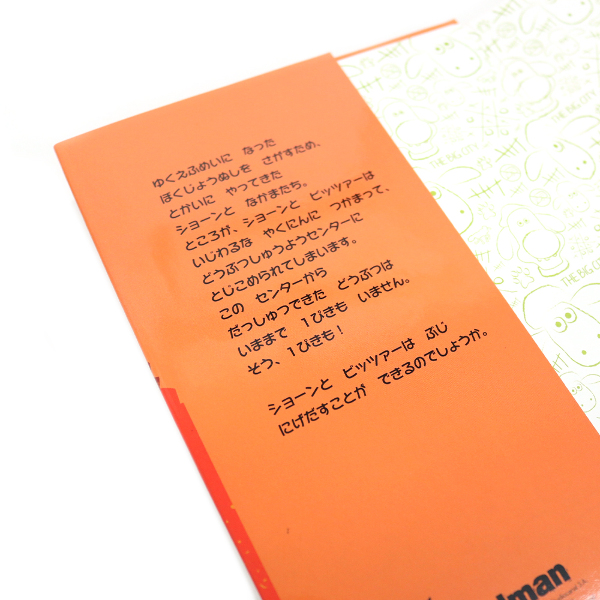 ゆくえふめいに なった
ぼくじょうぬしを さがすため、
とかいに やってきた
ショーンと なかまたち。
ところが、ショーンと ビッツァーは
いじわるな やくにんに つかまって、
どうぶつしゅうようセンターに
とじこめられてしまいます。
この センターから
だっしゅつできた どうぶつは
いままで 1ぴきも いません。
そう、1ぴきも!
ショーンと ビッツァーは ぶじ
にげだすことが できるのでしょうか。
THE BIG CITY
THE BIG CITY
THE BIG